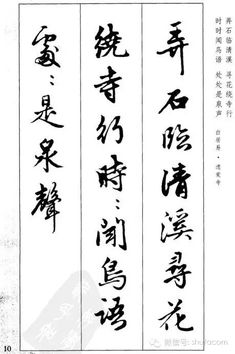 弄石临清溪 寻花绕寺行
时时闻鸟语 处处是泉声
白居易·遗爱寺
弄石臨清溪尋花
繞寺行時：聞鳥語
處：是泉聲
10
微信号: